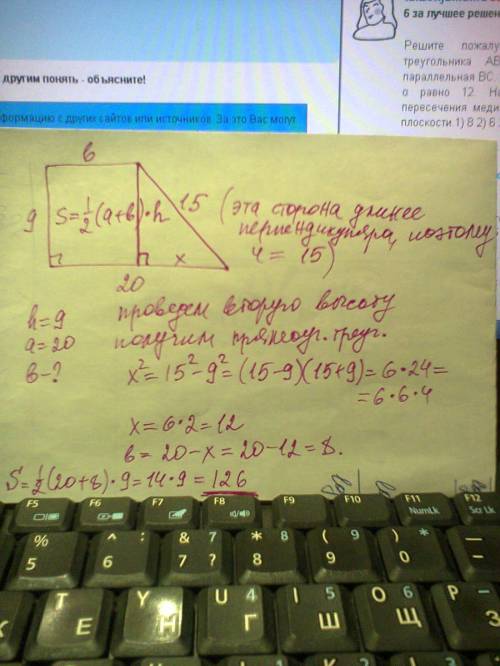 6 за лучшее решен
Решите пожалу
треугольника АВ
параллельная ВС.
о равно 12. На
пересечения меди
плоскости.1) 8 2) 6
другим понять - объясните!
формацию с других сайтов или источников. За это Вас могут
в
9 S=½(a+в)·h 15 (эта сторона длинее
перпендикуляра, поэтому
4 = 15)
x
20
h=9 проведем вторую высоту
a=20 получим прямоуг. треуг.
в-? x²=15²-9²=(15-9)(15+9)=6·24=
=6·6·4
x=6·2=12
в=20-x=20-12=8.
S=½(20+8)·9=14·9=126
F5 F6 F7 F8 F9 F10 F11 F12
NumLk Scr Lk
% ^ : & 7 * 8 ( 9 ) *
5 6 7 ? 8 9 0
T Y U 4 I 5 O 6 P
Е Н Г Ш Щ З